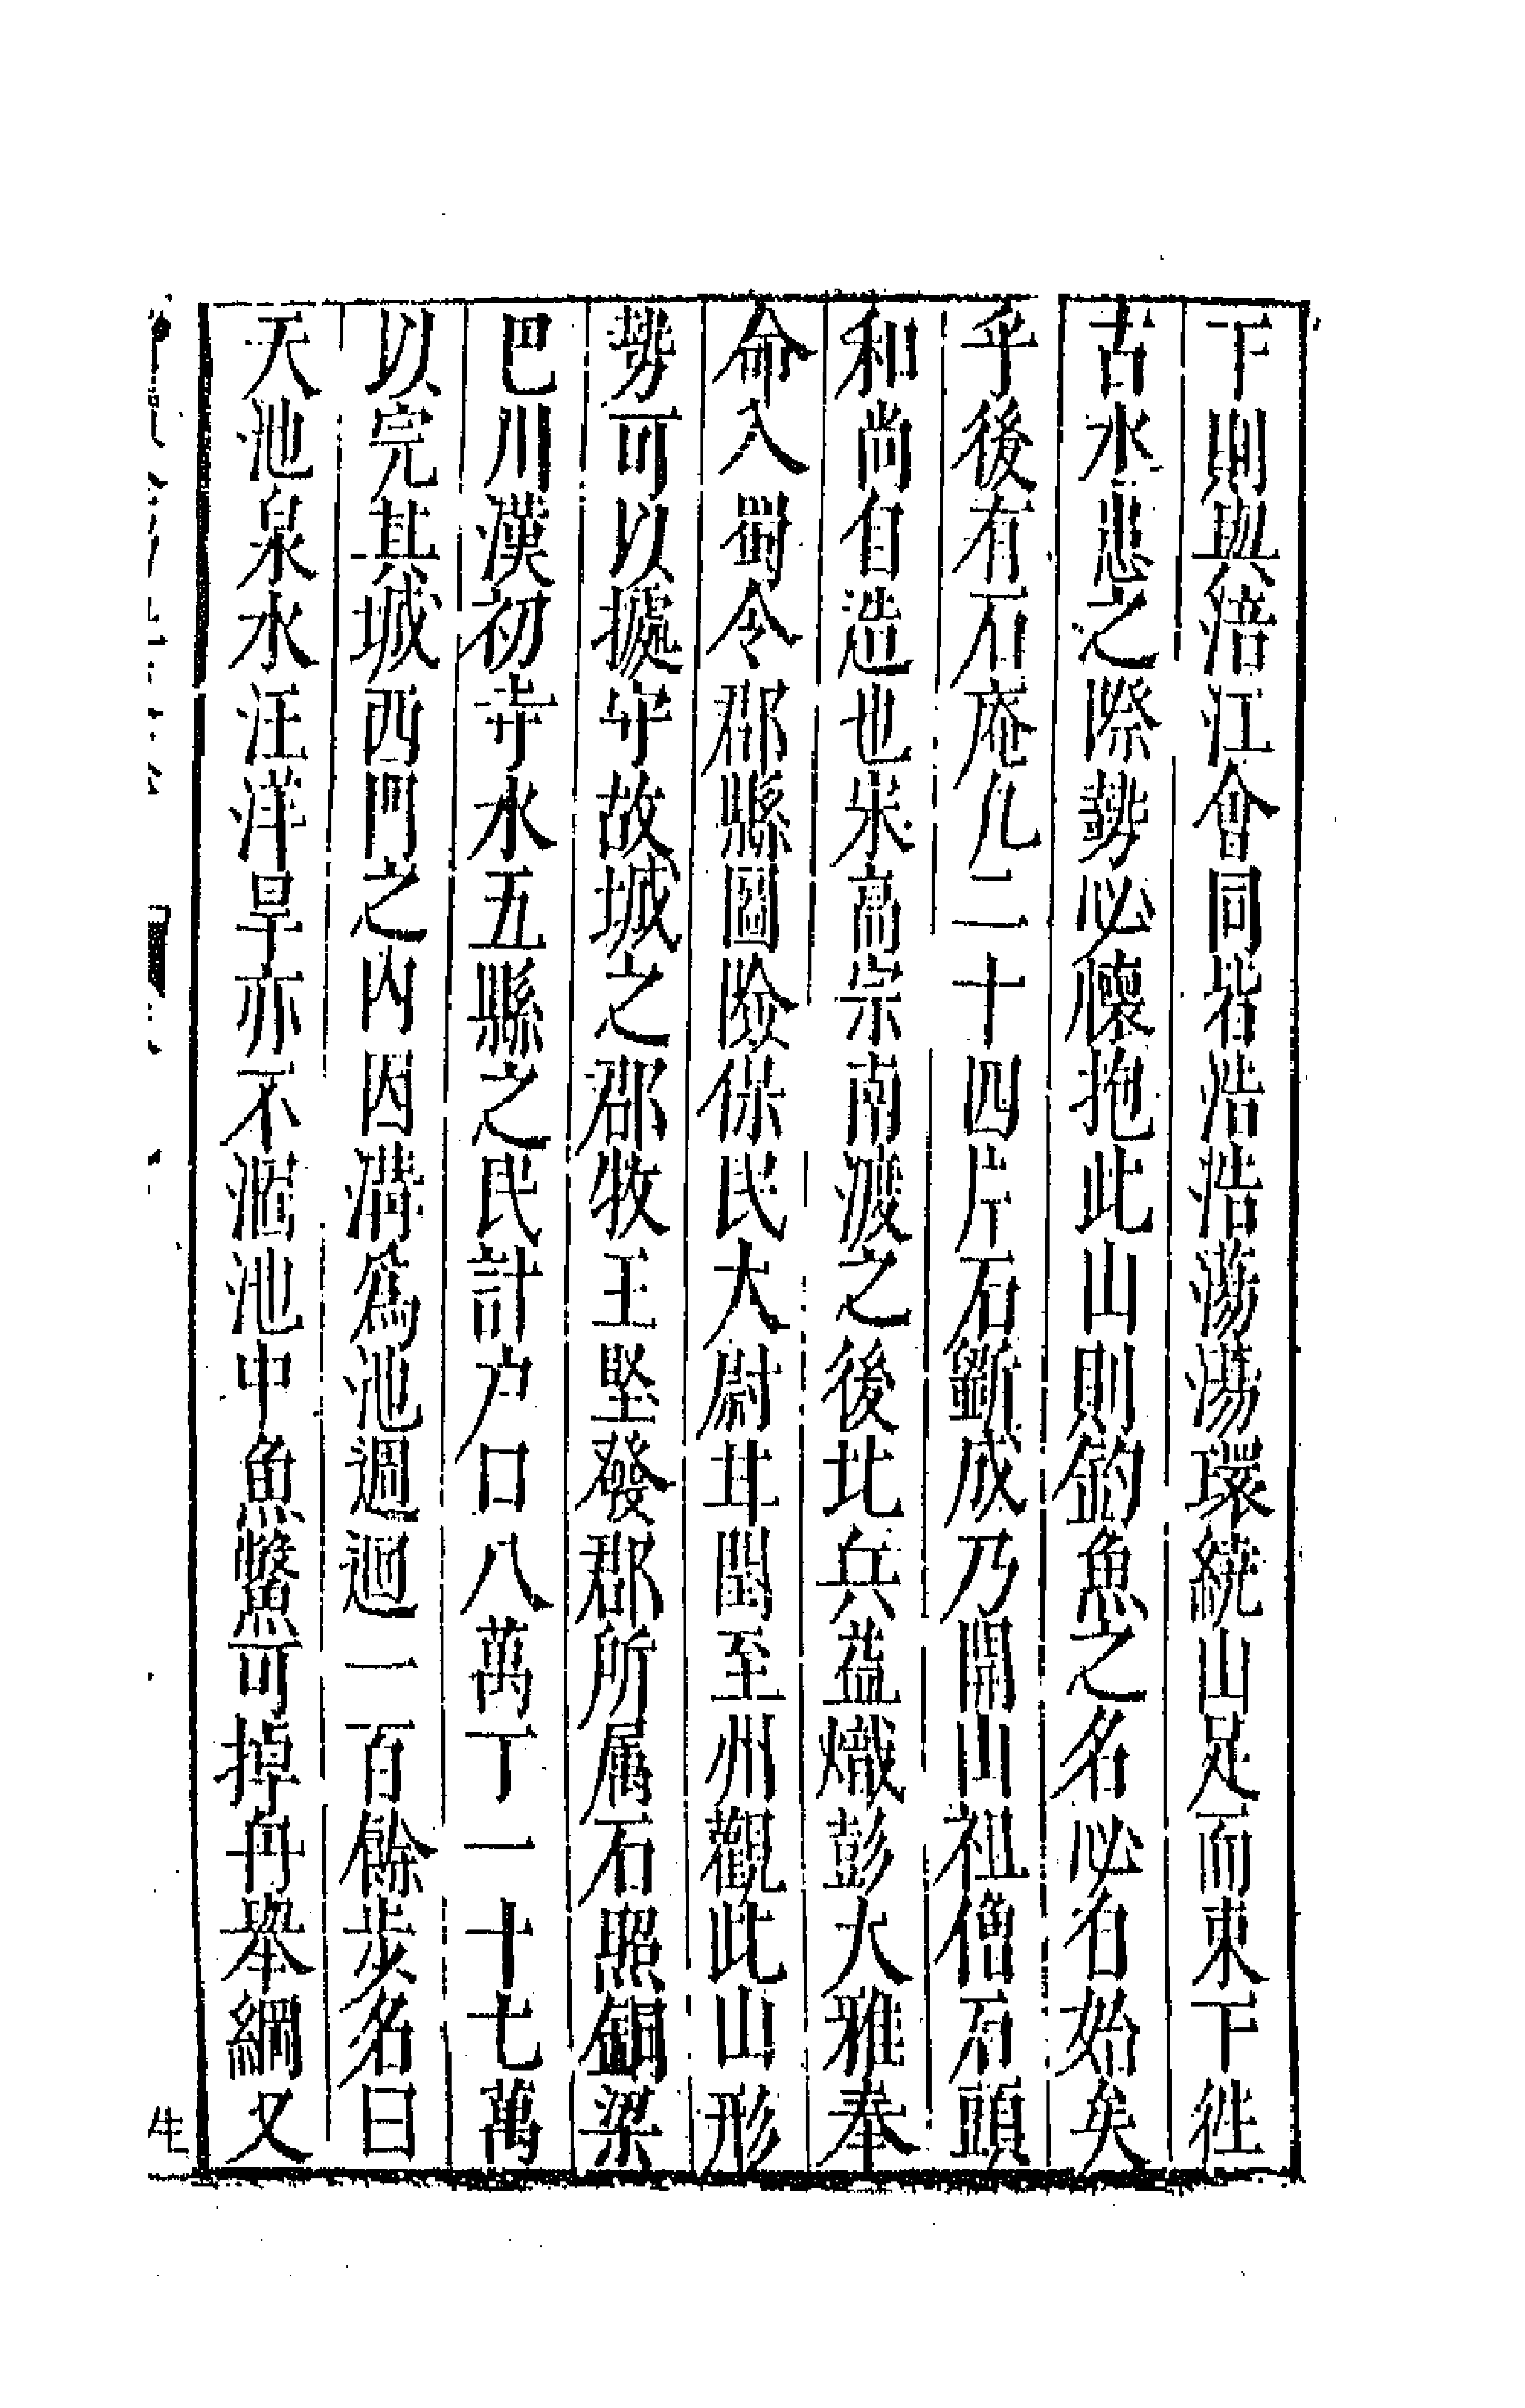 下則與涪江會同皆浩浩蕩蕩環繞山足而東下徃
古水患之際勢必懷抱此山則釣魚之名必名始矣
乎後有石庵凢二十四片石斲成乃開山祖僧石頭
和尚自造也宋高宗南渡之後北兵益熾彭大雅奉
命入蜀令郡縣圖險保民大尉甘閏至州觀此山形
勢可以據守故城之郡牧王堅發郡所属石照銅梁
巴川漢初寺水五縣之民計户口八萬丁一十七萬
以完其城西門之内因溝為池週迴一百餘步名曰
天池泉水汪洋旱亦不涸池中魚鱉可掉舟舉網又